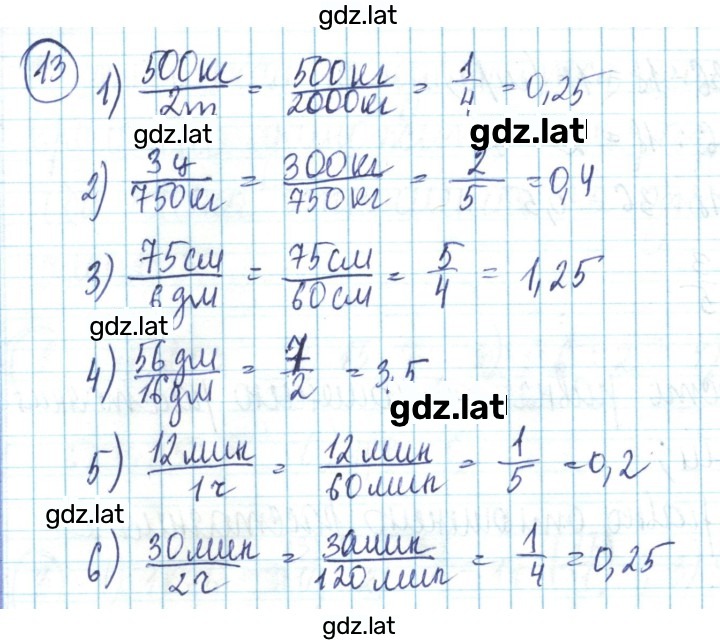 gdz.lat
13 1) 500кг/2т = 500кг/2000кг = 1/4 = 0,25
gdz.lat gdz.lat
2) 3ц/750кг = 300кг/750кг = 2/5 = 0,4
3) 75см/6дм = 75см/60см = 5/4 = 1,25
gdz.lat
4) 56дм/16дм = 7/2 = 3,5
gdz.lat
5) 12мин/1ч = 12мин/60мин = 1/5 = 0,2
gdz.lat
6) 30мин/2ч = 30мин/120мин = 1/4 = 0,25
gdz.lat